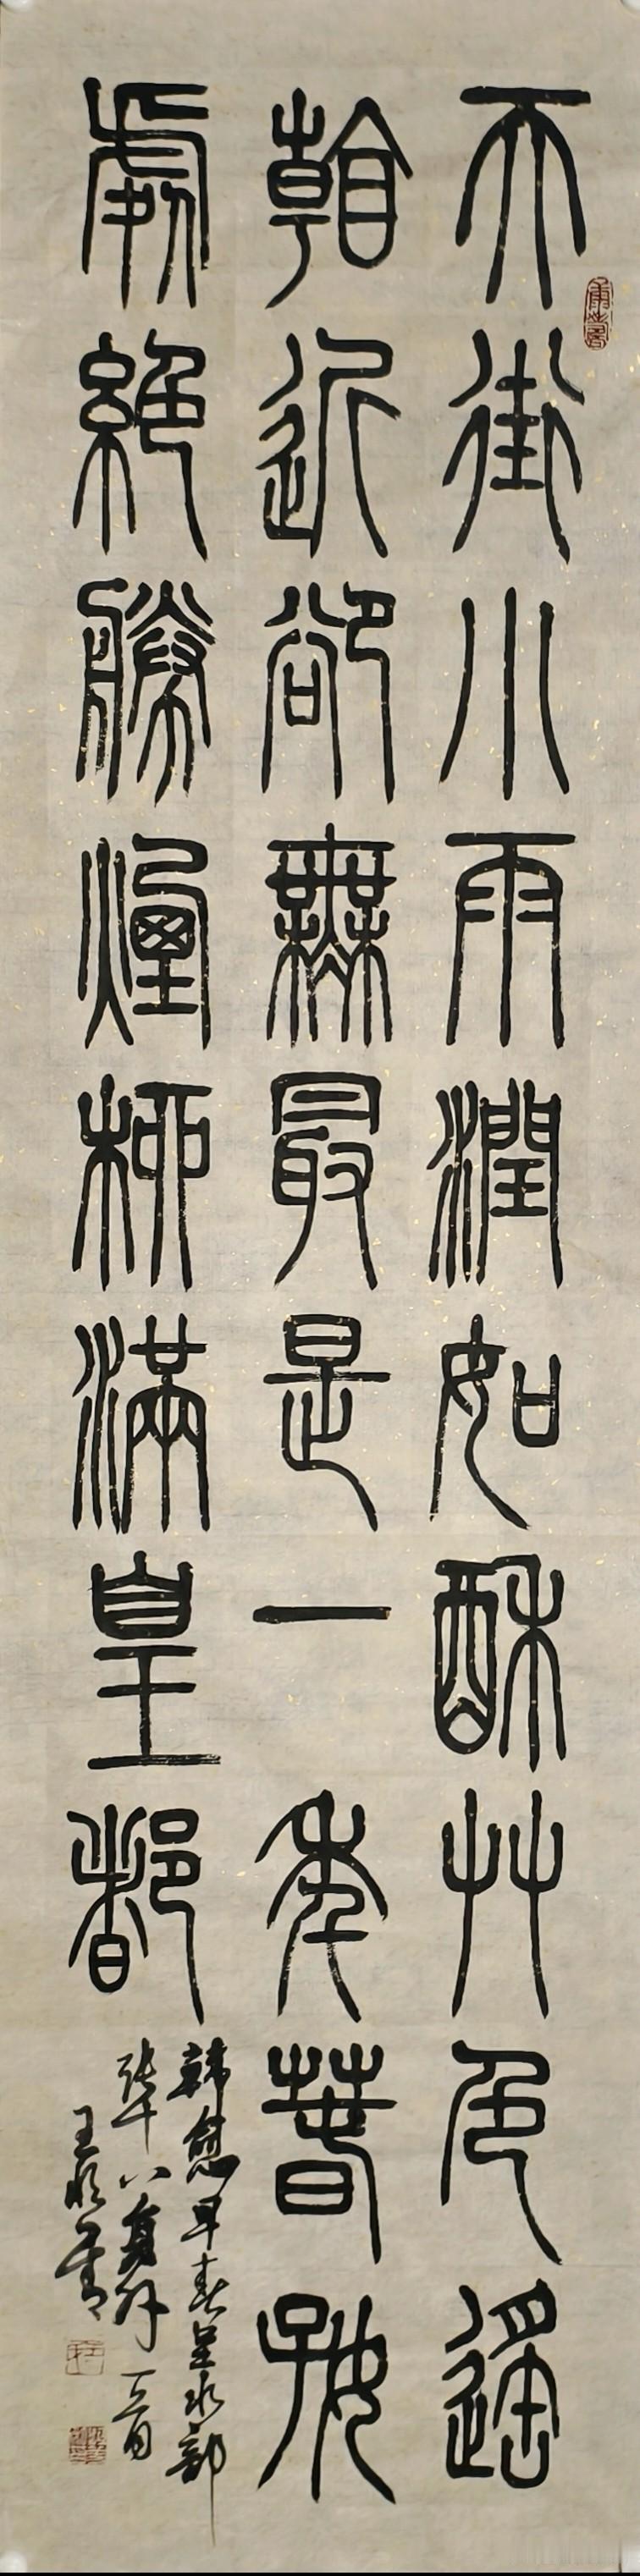 天街小雨潤如酥草色遙
看近卻無最是一年春好
處絕勝煙柳滿皇都
韓愈早春呈水部
張十八員外一首
王